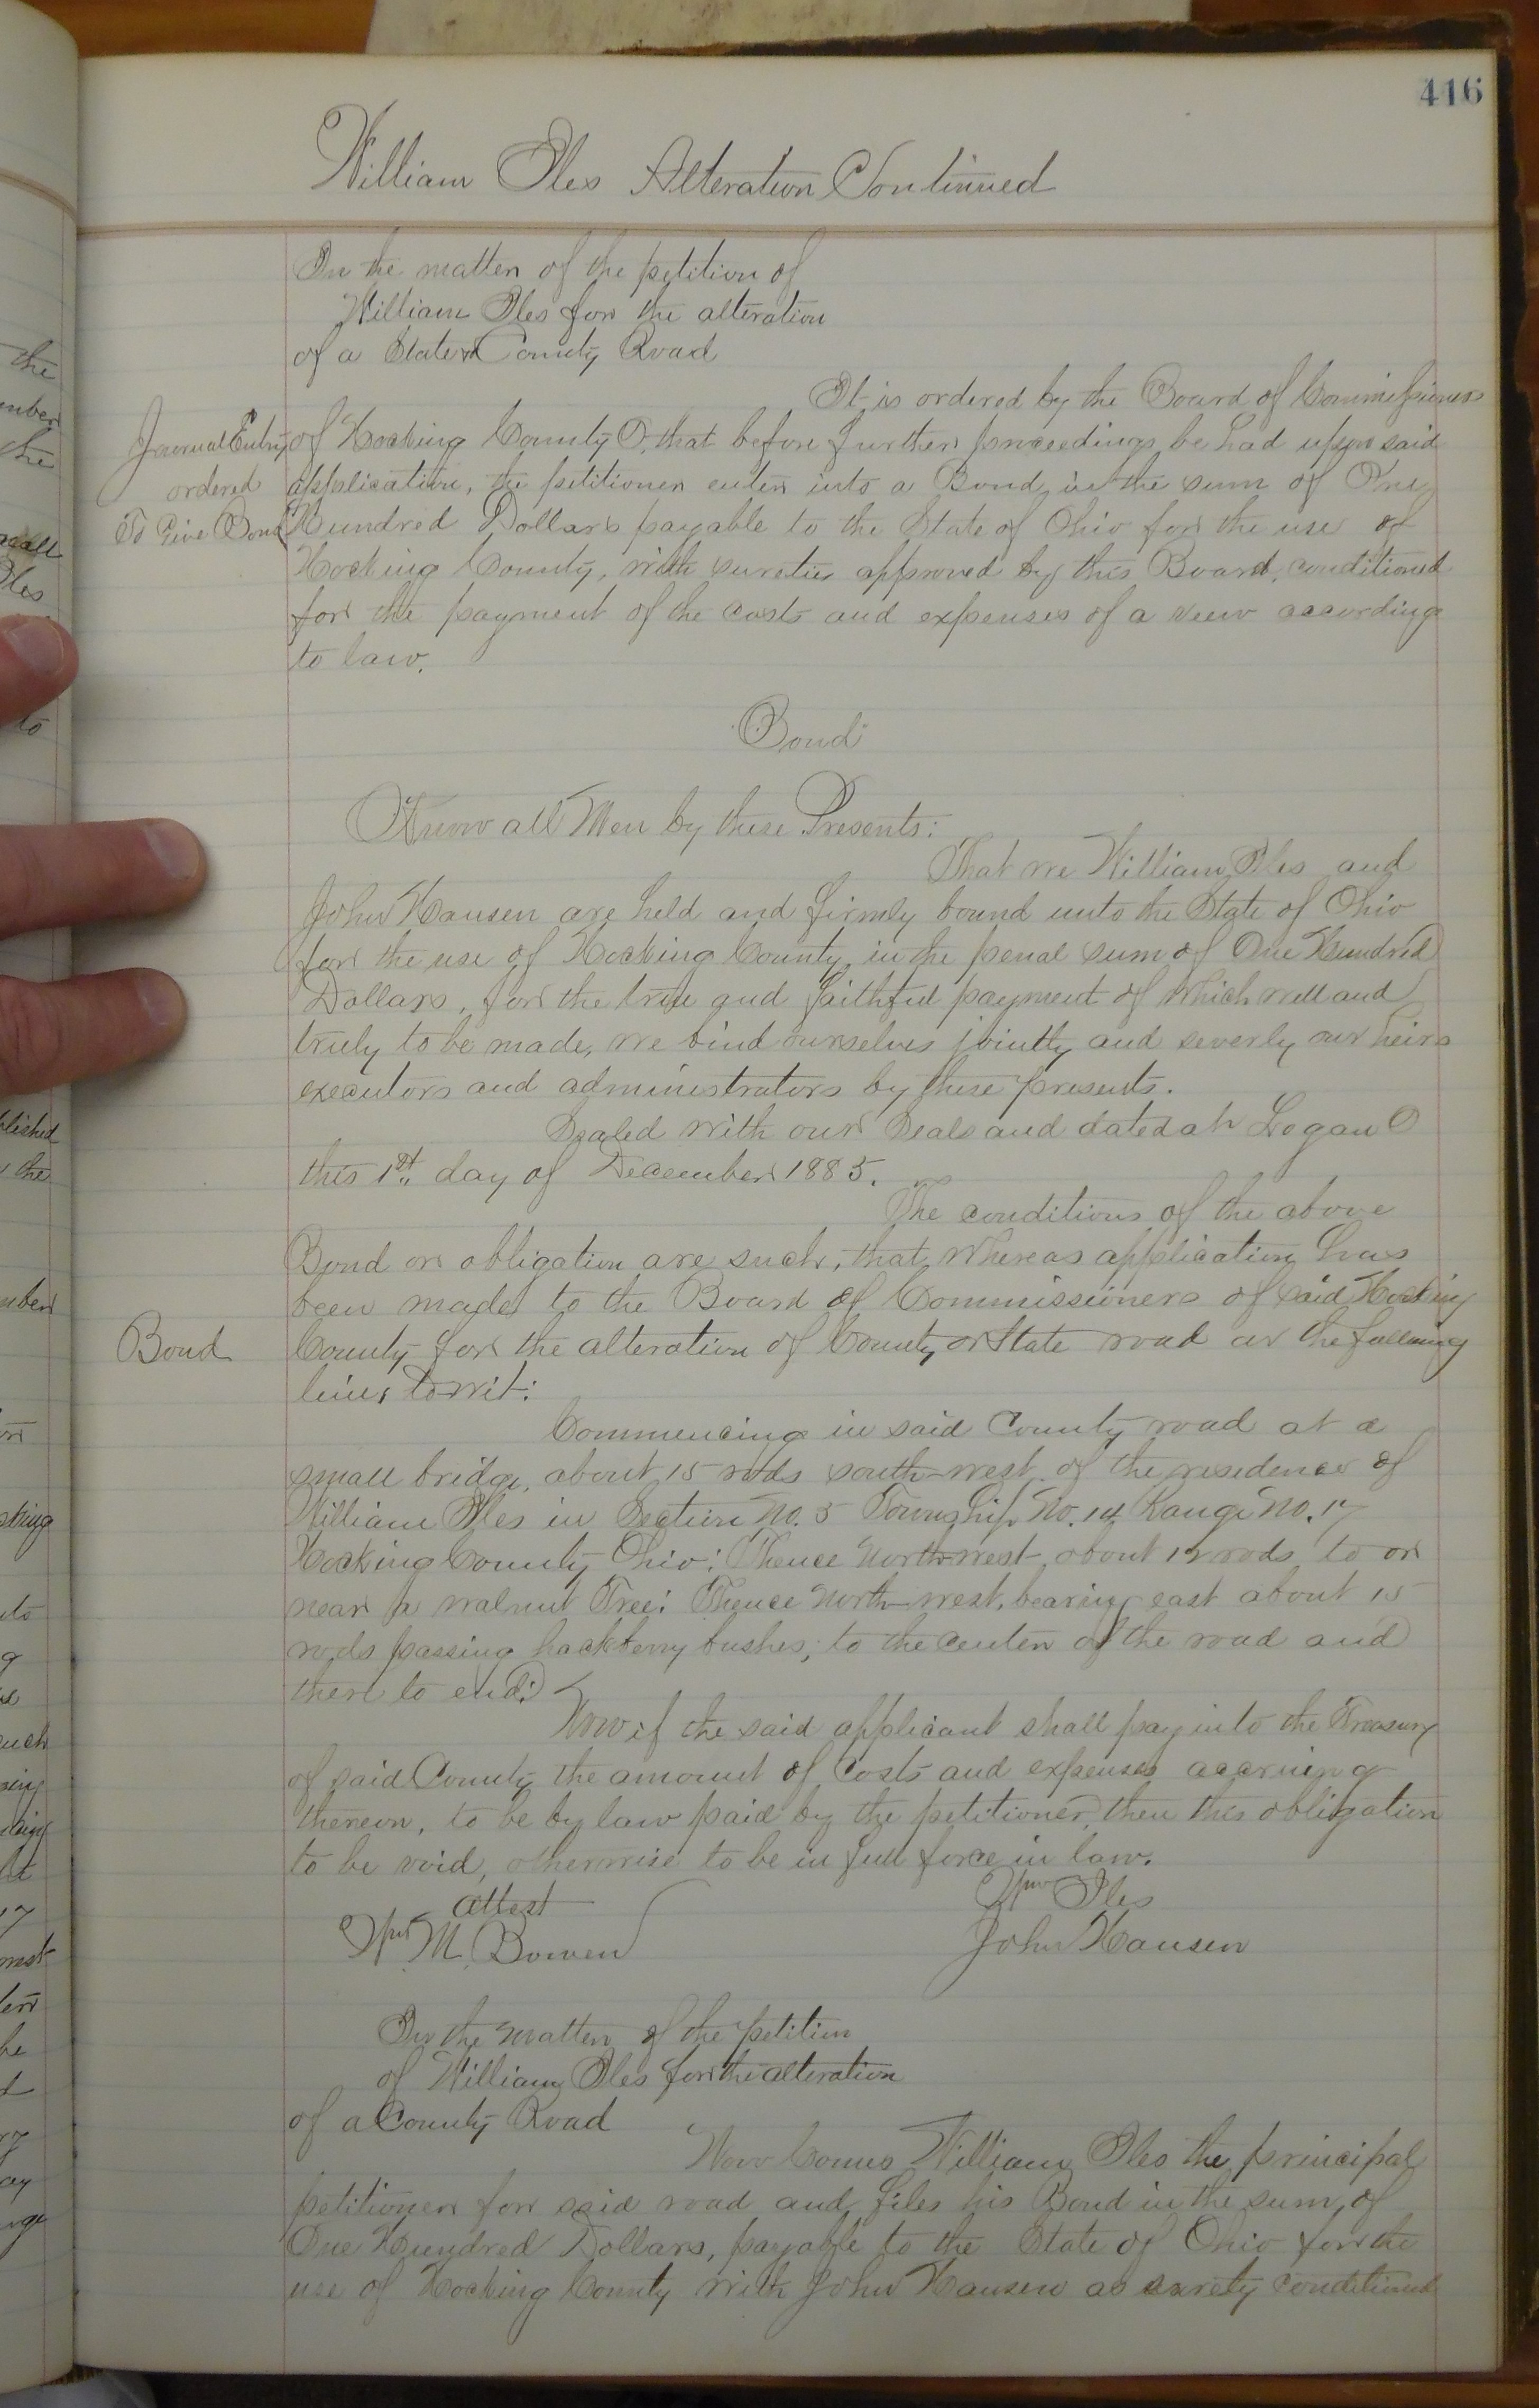 416
William Iles Alteration Continued
In the matter of the petition of
William Iles for the alteration
of a State & County Road
It is ordered by the Board of Commissioners
Journal Entry
of Hocking County O. that before further proceedings be had upon said
ordered
application, the petitioner enter into a Bond in the sum of One
To Give Bond
Hundred Dollars payable to the State of Ohio for the use of
Hocking County, with sureties approved by this Board, conditioned
for the payment of the costs and expenses of a view according
to law.
Bond
Know all Men by these Presents:
That we William Iles and
John Hansen are held and firmly bound unto the State of Ohio
for the use of Hocking County, in the penal sum of One Hundred
Dollars, for the true and faithful payment of which well and
truly to be made, we bind ourselves jointly and severly our heirs
executors and administrators by these presents.
Sealed with our Seals and dated at Logan O
this 1st. day of December 1885.
The conditions of the above
Bond or obligation are such, that whereas application has
been made to the Board of Commissioners of said Hocking
Bond
County for the alteration of County or State road on the following
lines to-wit:
Commencing in said County road at a
small bridge, about 15 rods south-west of the residence of
William Iles in Section No. 5 Township No. 14 Range No. 17
Hocking County Ohio: Thence North-west about 12 rods to or
near a walnut Tree: Thence North-west, bearing east about 15
rods passing hackberry bushes, to the center of the road and
there to end.
Now if the said applicant shall pay into the Treasury
of said County the amount of Costs and expenses accruing
thereon, to be by law paid by the petitioner, then this obligation
to be void, otherwise to be in full force in law.
attest
Wm Iles
Wm M. Bowen
John Hansen
In the matter of the petition
of William Iles for the alteration
of a County Road
Now Comes William Iles the principal
petitioner for said road and files his Bond in the sum of
One Hundred Dollars, payable to the State of Ohio for the
use of Hocking County with John Hansen as surety conditioned